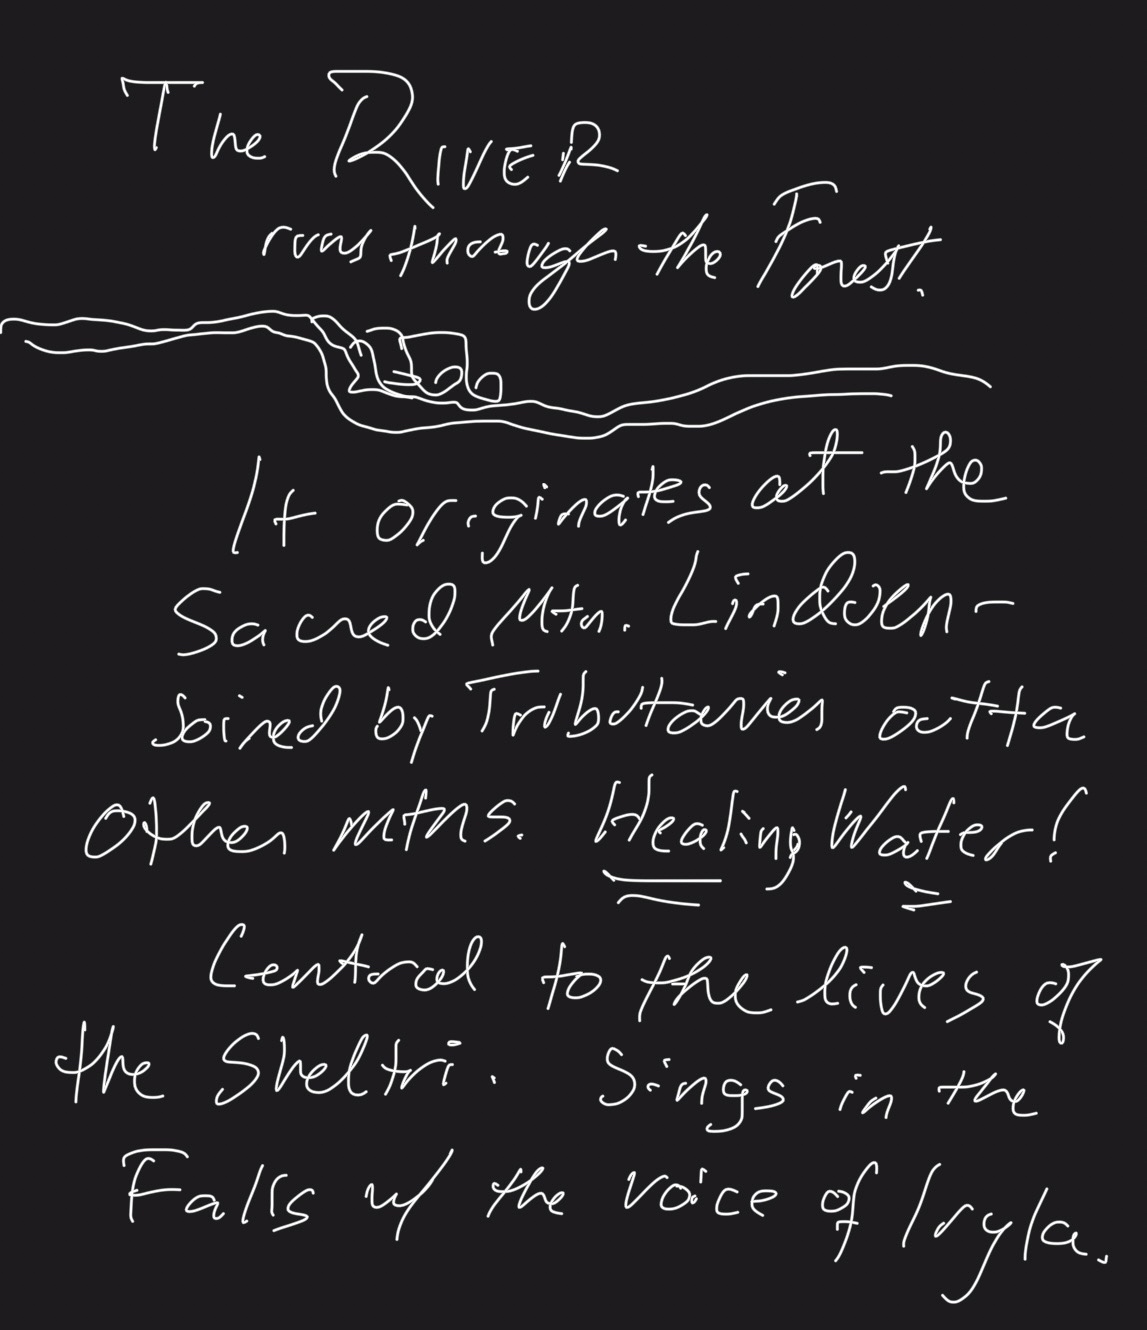 The RIVER
runs through the Forest.
It originates at the
Sacred Mtn. Lindven-
Joined by Tributaries outta
other mtns. Healing Water!
Central to the lives of
the Sheltri. Sings in the
Falls w/ the voice of Iryla.